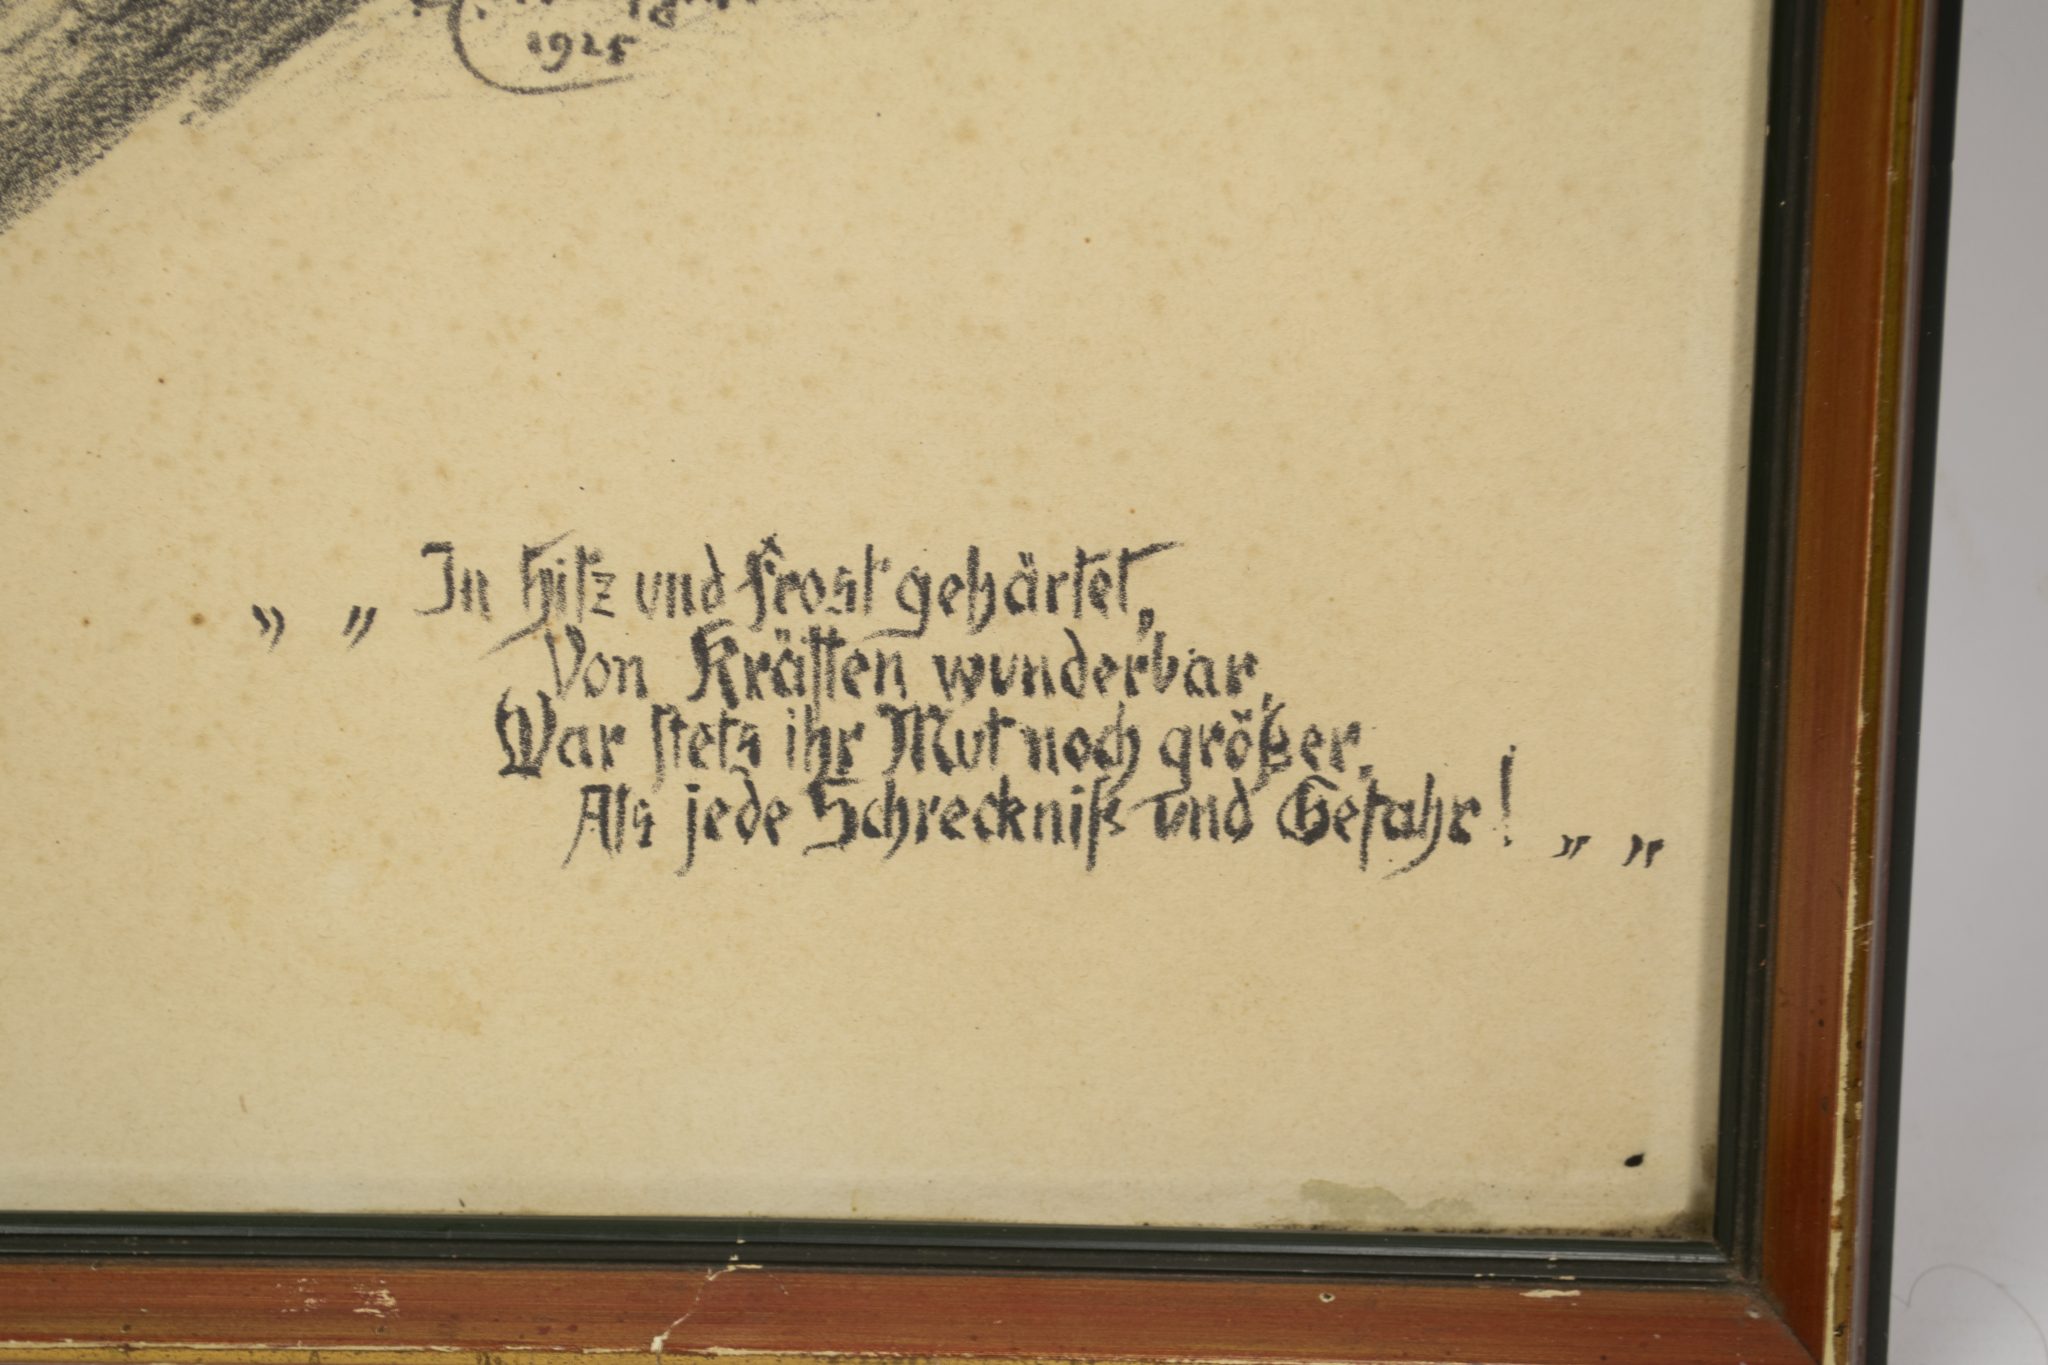 1925
„ „ In Hitz und Frost gehärtet,
Von Kräften wunderbar,
War stets ihr Mut noch größer,
Als jede Schreckniß und Gefahr! „ „